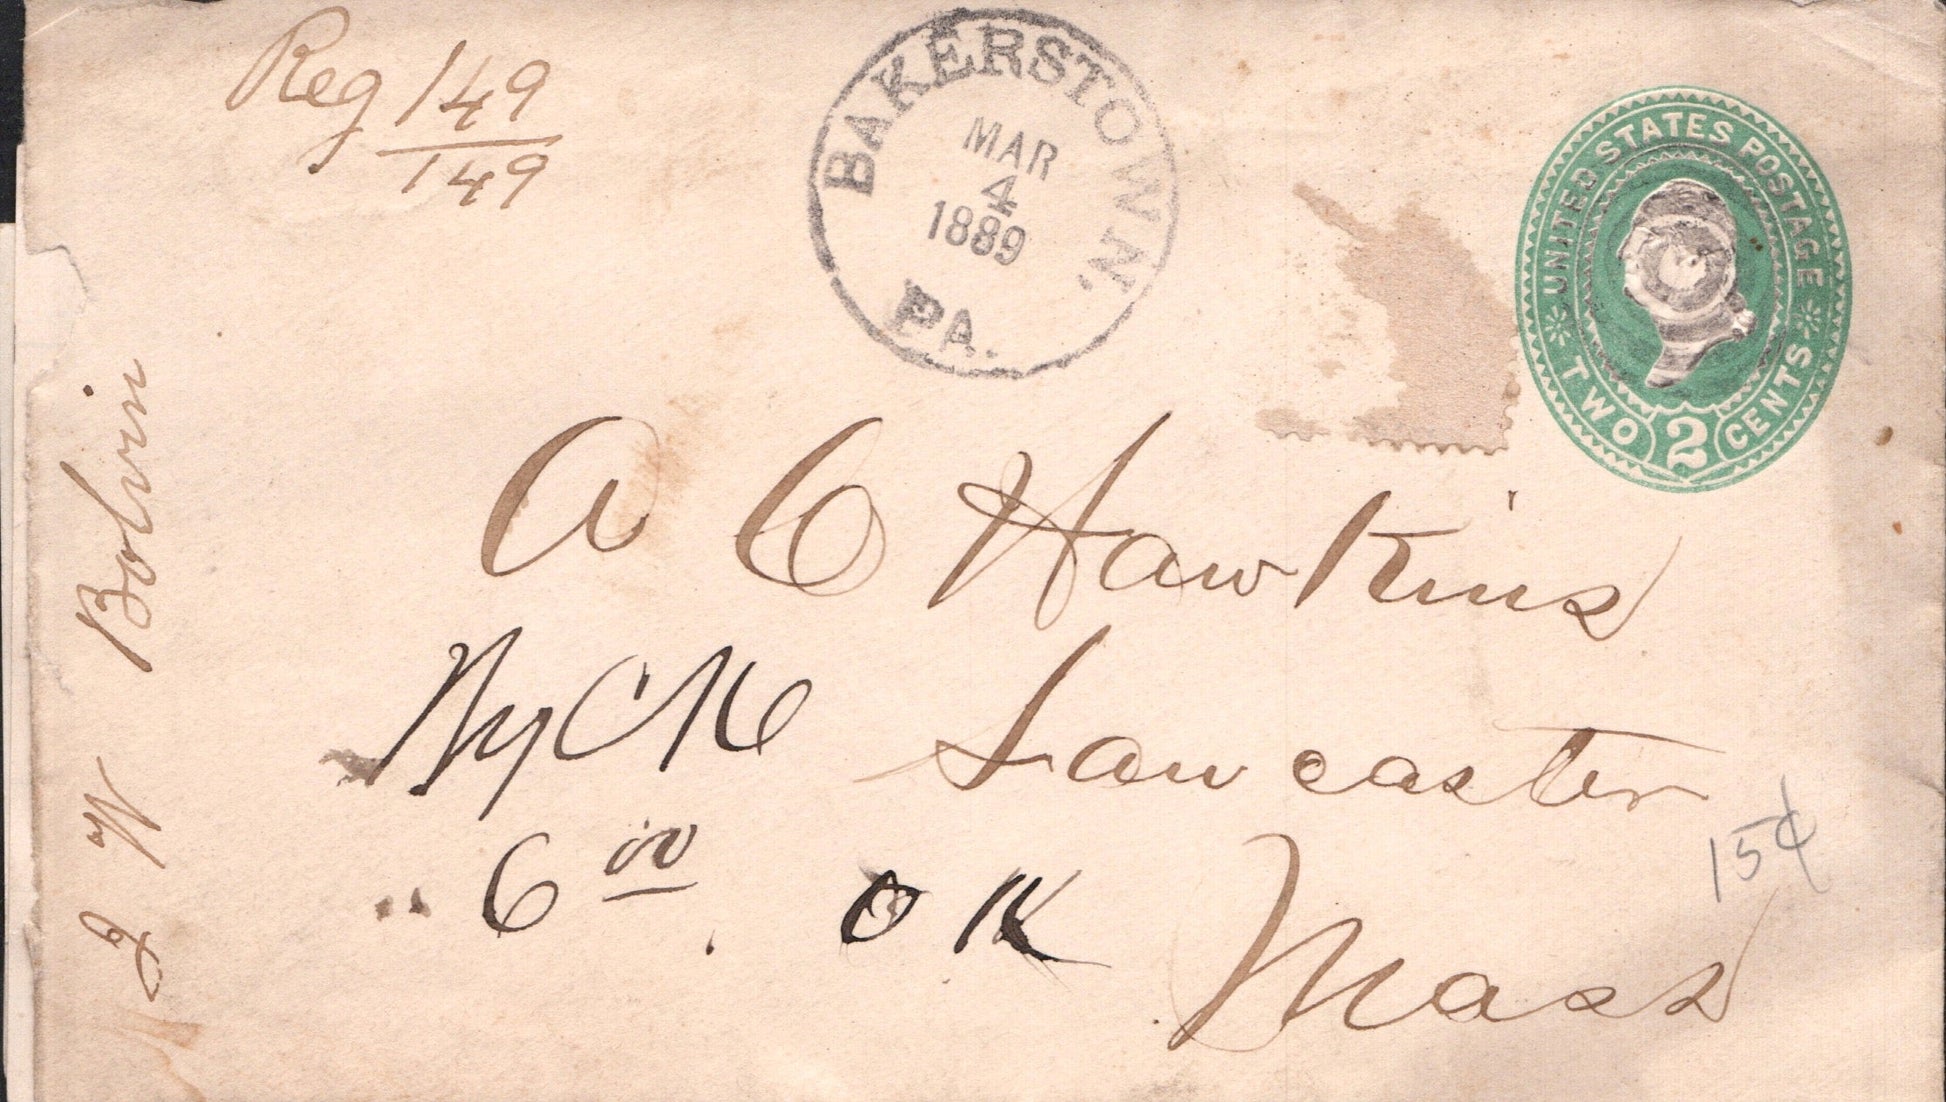 Reg 149
149
BAKERSTOWN,
MAR
4
1889
PA.
UNITED STATES POSTAGE
TWO 2 CENTS
A C Hawkins
Lancaster
Mass
6 00 OK
15¢
W Bolvin